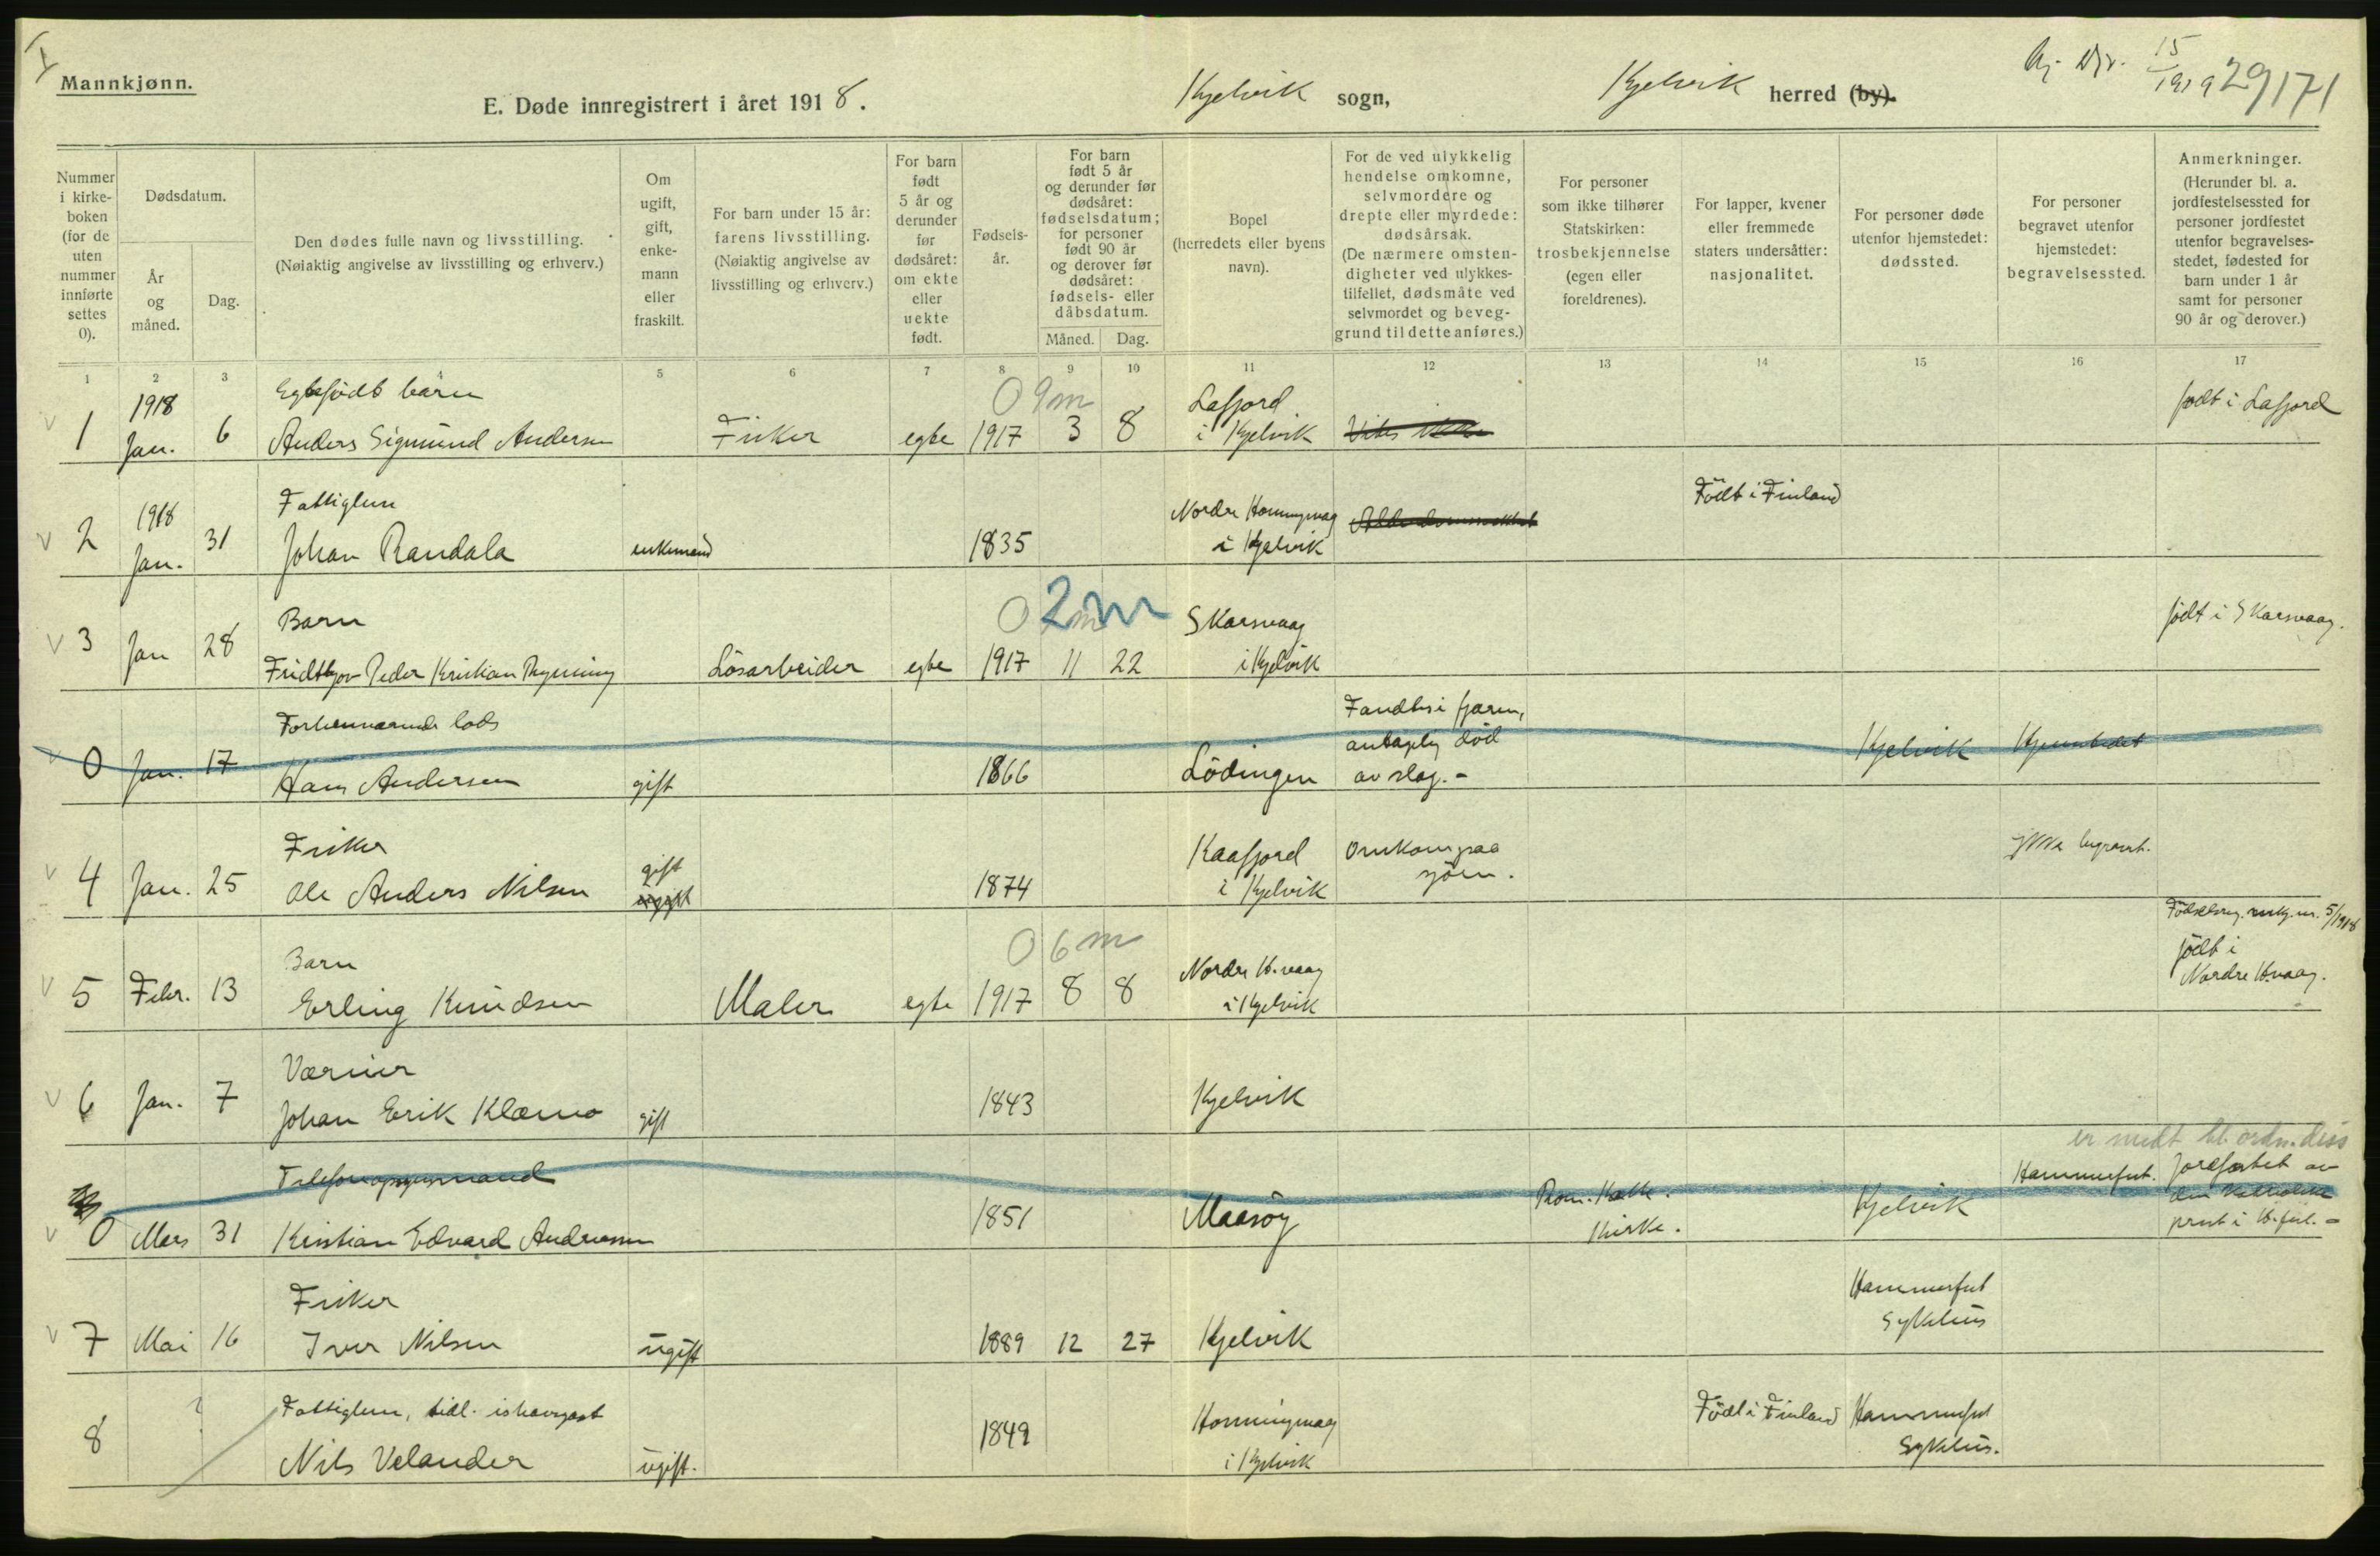 I
Mannkjønn.
E. Døde innregistrert i året 1918.
Kjelvik sogn,
Kjelvik herred (by).
15
1919
29171
Nummer i kirke-boken (for de uten nummer innførte settes 0).
Dødsdatum.
År og måned.
Dag.
Den dødes fulle navn og livsstilling.
(Nøiaktig angivelse av livsstilling og erhverv.)
Om ugift, gift, enke-mann eller fraskilt.
For barn under 15 år: farens livsstilling.
(Nøiaktig angivelse av livsstilling og erhverv.)
For barn født 5 år og derunder før dødsåret: om ekte eller uekte født.
Fødsels-år.
For barn født 5 år og derunder før dødsåret: fødselsdatum; for personer født 90 år og derover før dødsåret: fødsels- eller dåbsdatum.
Måned.
Dag.
Bopel (herredets eller byens navn).
For de ved ulykkelig hendelse omkomne, selvmordere og drepte eller myrdede: dødsårsak.
(De nærmere omsten-digheter ved ulykkes-tilfellet, dødsmåte ved selvmordet og beveg-grund til dette anføres.)
For personer som ikke tilhører Statskirken: trosbekjennelse (egen eller foreldrenes).
For lapper, kvener eller fremmede staters undersåtter: nasjonalitet.
For personer døde utenfor hjemstedet: dødssted.
For personer begravet utenfor hjemstedet: begravelsessted.
Anmerkninger.
(Herunder bl. a. jordfestelsessted for personer jordfestet utenfor begravelses-stedet, fødested for barn under 1 år samt for personer 90 år og derover.)
1 2 3 4 5 6 7 8 9 10 11 12 13 14 15 16 17
1918 Egtefødt barn 0 9m Lafjord født i Lafjord
1 Jan. 6 Anders Sigmund Andersen Fisker egte 1917 3 8 i Kjelvik Vites ikke
1918 Fattiglem Nordre Honningvaag Alderdomssvakhet Født i Finland
2 Jan. 31 Johan Randala enkemand 1835 i Kjelvik
Barn 0 2m Skarsvaag født i Skarsvaag.
3 Jan 28 Fridtjov Peder Kristian Bryning Løsarbeider egte 1917 11 22 i Kjelvik
Forhenværende lods Fandtes i fjæren,
antagelig død Kjelvik Hjemstedet
0 Jan. 17 Hans Andersen gift 1866 Lødingen av slag.-
Fisker gift Kaafjord Omkom paa ikke begravet.
4 Jan. 25 Ole Anders Nilsen ugift 1874 i Kjelvik sjøen.
Fødselsreg. mk. nr. 5/1918
Barn 0 6m Nordre H.vaag født i
5 Febr. 13 Erling Knudsen Maler egte 1917 8 8 i Kjelvik Nordre H.vaag.
Værøier
6 Jan. 7 Johan Erik Klæmo gift 1843 Kjelvik
er meldt bl. ordn. diss
Telefonopsynsmand Rom. Kath. Hammerfest. Jordfæstet av den katholske
0 Mars 31 Kristian Edvard Andreassen 1851 Maasøy Kirke. Kjelvik prest i H.fest.-
Fisker Hammerfest
7 Mai 16 Iver Nilsen ugift 1889 12 27 Kjelvik Sykehus
? Fattiglem, tidl. ishavsgast Honningvaag Født i Finland Hammerfest
8 Nils Velander ugift. 1849 i Kjelvik Sykehus.